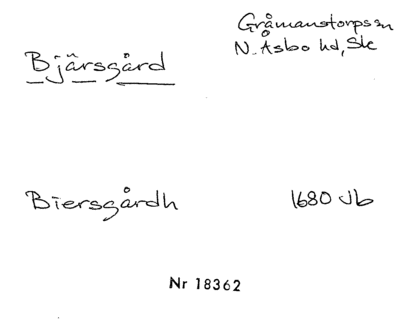 Gråmanstorps sn
N. Åsbo hd, Sk
Bjärsgård
Biersgårdh 1680 Jb
Nr 18362